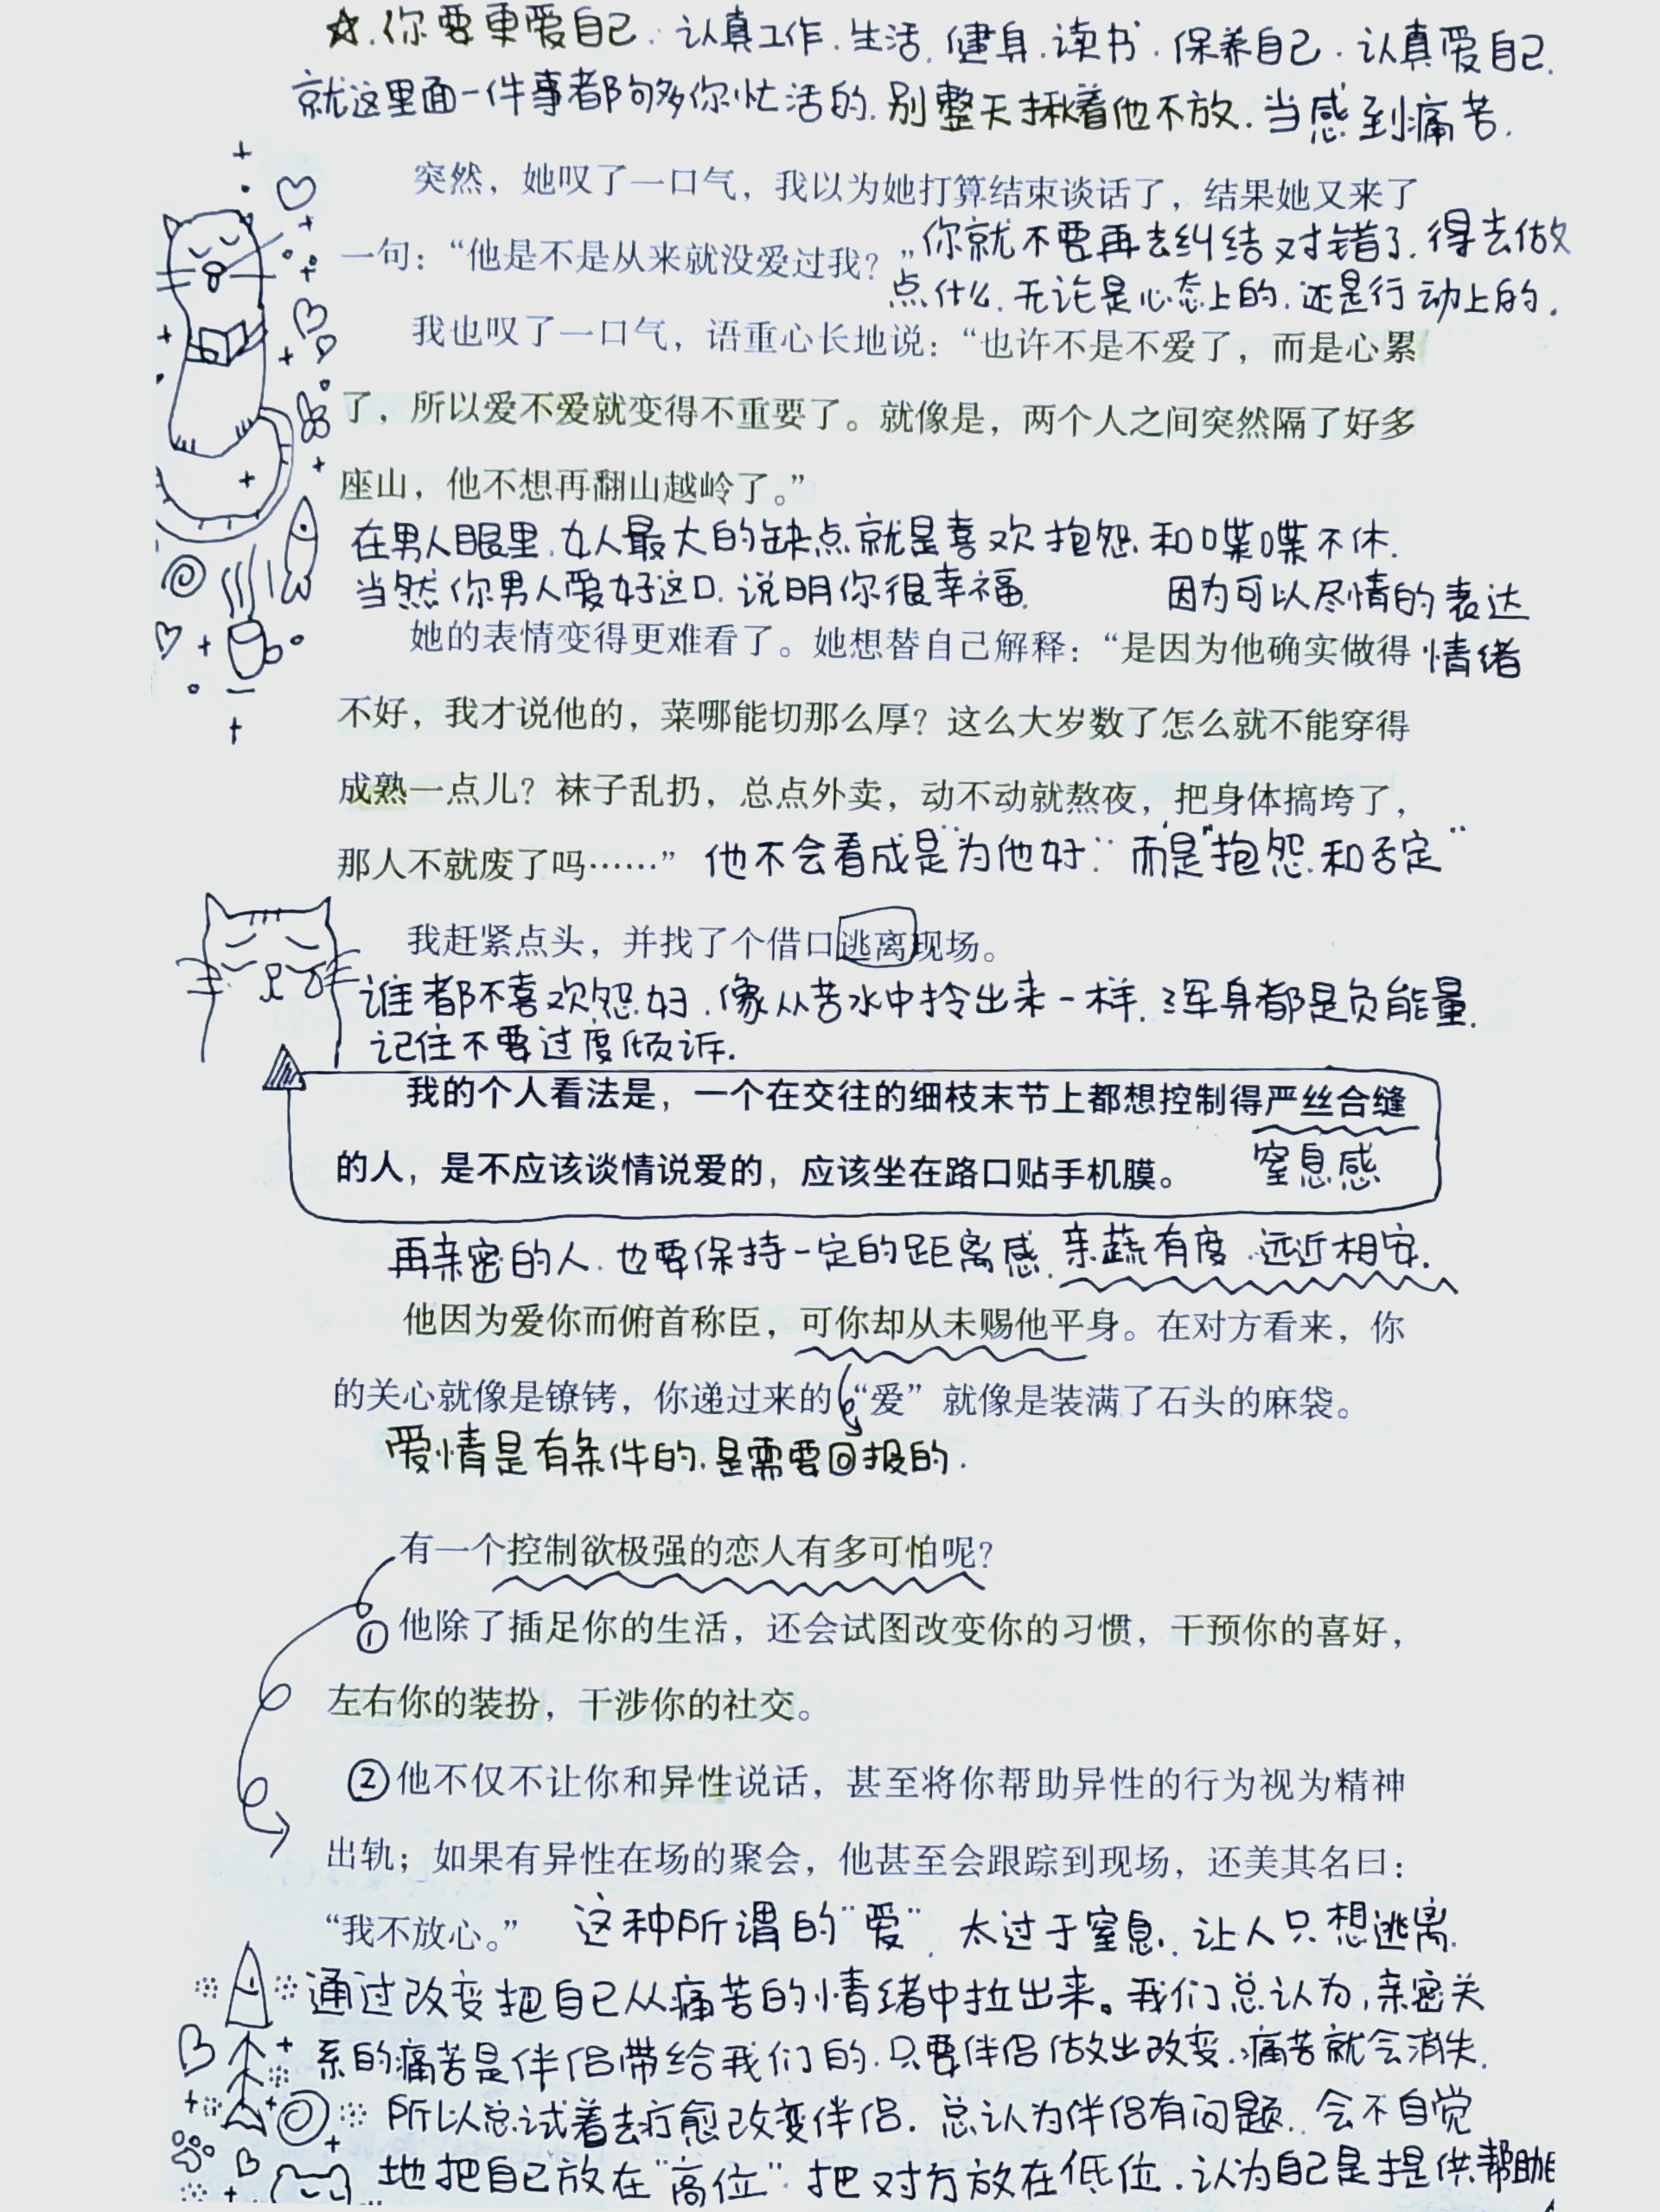 ☆.你要更爱自己.认真工作.生活.健身.读书.保养自己.认真爱自己.
就这里面一件事者都够你忙活的.别整天揪着他不放.当感到痛苦.
突然，她叹了一口气，我以为她打算结束谈话了，结果她又来了
一句：“他是不是从来就没爱过我？”你就不要再去纠结对错了.得去做
点什么.无论是心态上的.还是行动上的.
我也叹了一口气，语重心长地说：“也许不是不爱了，而是心累
了，所以爱不爱就变得不重要了。就像是，两个人之间突然隔了好多
座山，他不想再翻山越岭了。”
在男人眼里.女人最大的缺点就是喜欢抱怨.和喋喋不休.
当然你男人爱好这口.说明你很幸福. 因为可以尽情的表达
她的表情变得更难看了。她想替自己解释：“是因为他确实做得 情绪
不好，我才说他的，菜哪能切那么厚？这么大岁数了怎么就不能穿得
成熟一点儿？袜子乱扔，总点外卖，动不动就熬夜，把身体搞垮了，
那人不就废了吗……” 他不会看成是“为他好”而是“抱怨.和否定”
我赶紧点头，并找了个借口逃离现场。
谁都不喜欢怨妇.像从苦水中拎出来一样.浑身都是负能量.
记住不要过度倾诉.
我的个人看法是，一个在交往的细枝末节上都想控制得严丝合缝
的人，是不应该谈情说爱的，应该坐在路口贴手机膜。 窒息感
再亲密的人.也要保持一定的距离感.亲疏有度.远近相安.
他因为爱你而俯首称臣，可你却从未赐他平身。在对方看来，你
的关心就像是镣铐，你递过来的“爱”就像是装满了石头的麻袋。
爱情是有条件的.是需要回报的.
有一个控制欲极强的恋人有多可怕呢？
①他除了插足你的生活，还会试图改变你的习惯，干预你的喜好，
左右你的装扮，干涉你的社交。
②他不仅不让你和异性说话，甚至将你帮助异性的行为视为精神
出轨；如果有异性在场的聚会，他甚至会跟踪到现场，还美其名曰：
“我不放心。” 这种所谓的“爱”.太过于窒息.让人只想逃离.
通过改变把自己从痛苦的情绪中拉出来。我们总认为,亲密关
系的痛苦是伴侣带给我们的.只要伴侣做出改变.痛苦就会消失.
所以总试着去疗愈改变伴侣.总认为伴侣有问题.会不自觉
地把自己放在“高位”.把对方放在低位.认为自己是提供帮助